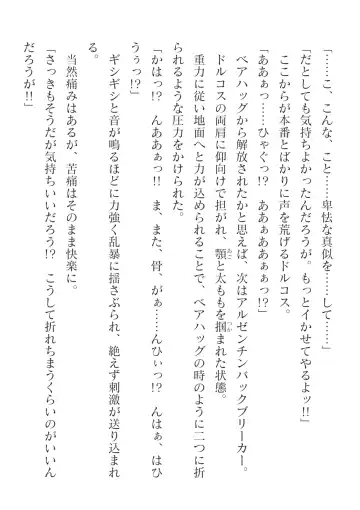 「……こ、こんな、こと……卑怯な真似をして……」
「だとしても気持ちよかったんだろうが。もっとイかせてやるよッ!!」
ここからが本番とばかりに声を荒げるドルコス。
「ああぁっ……ひゃぐっ!? ああぁああぁぁっ!?」
ベアハッグから解放されたかと思えば、次はアルゼンチンバックブリーカー。
ドルコスの両肩に仰向けで担がれ、顎と太ももを掴まれた状態。
重力に従い地面へと力が込められることで、ベアハッグの時のように二つに折
られるような圧力をかけられた。
「かはっ!? んああぁっ!! ま、また、骨、がぁ……んひぃっ!? んはぁ、はひ
うぅっ!?」
ギシギシと音が鳴るほどに力強く乱暴に揺さぶられ、絶えず刺激が送り込まれ
る。
当然痛みはあるが、苦痛はそのまま快楽に。
「さっきもそうだが気持ちいいだろう!? こうして折れちまうくらいのがいいん
だろうが!!」